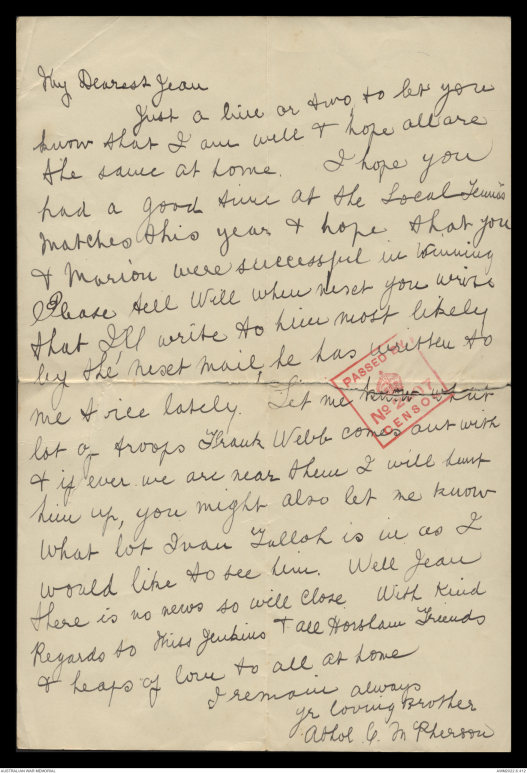 My Dearest Jean
Just a line or two, to let you
know that I am well & hope all are
the same at home. I hope you
had a good time at the Local Tennis
Matches this year & hope that you
& Marion were successful in winning
Please tell Will when next you write
that I'll write to him most likely
by the next mail, he has written to
me twice lately. Let me know what
lot of troops Frank Webb comes out with
& if ever we are near them I will hunt
him up, you might also let me know
what lot Ivan Tulloh is in as I
would like to see him. Well Jean
there is no news so will close. With Kind
Regards to Miss Jenkins & all Horsham Friends
& heaps of love to all at home
I remain always
yr loving Brother
Athol C. McPherson
PASSED BY
CENSOR
AUSTRALIAN WAR MEMORIAL